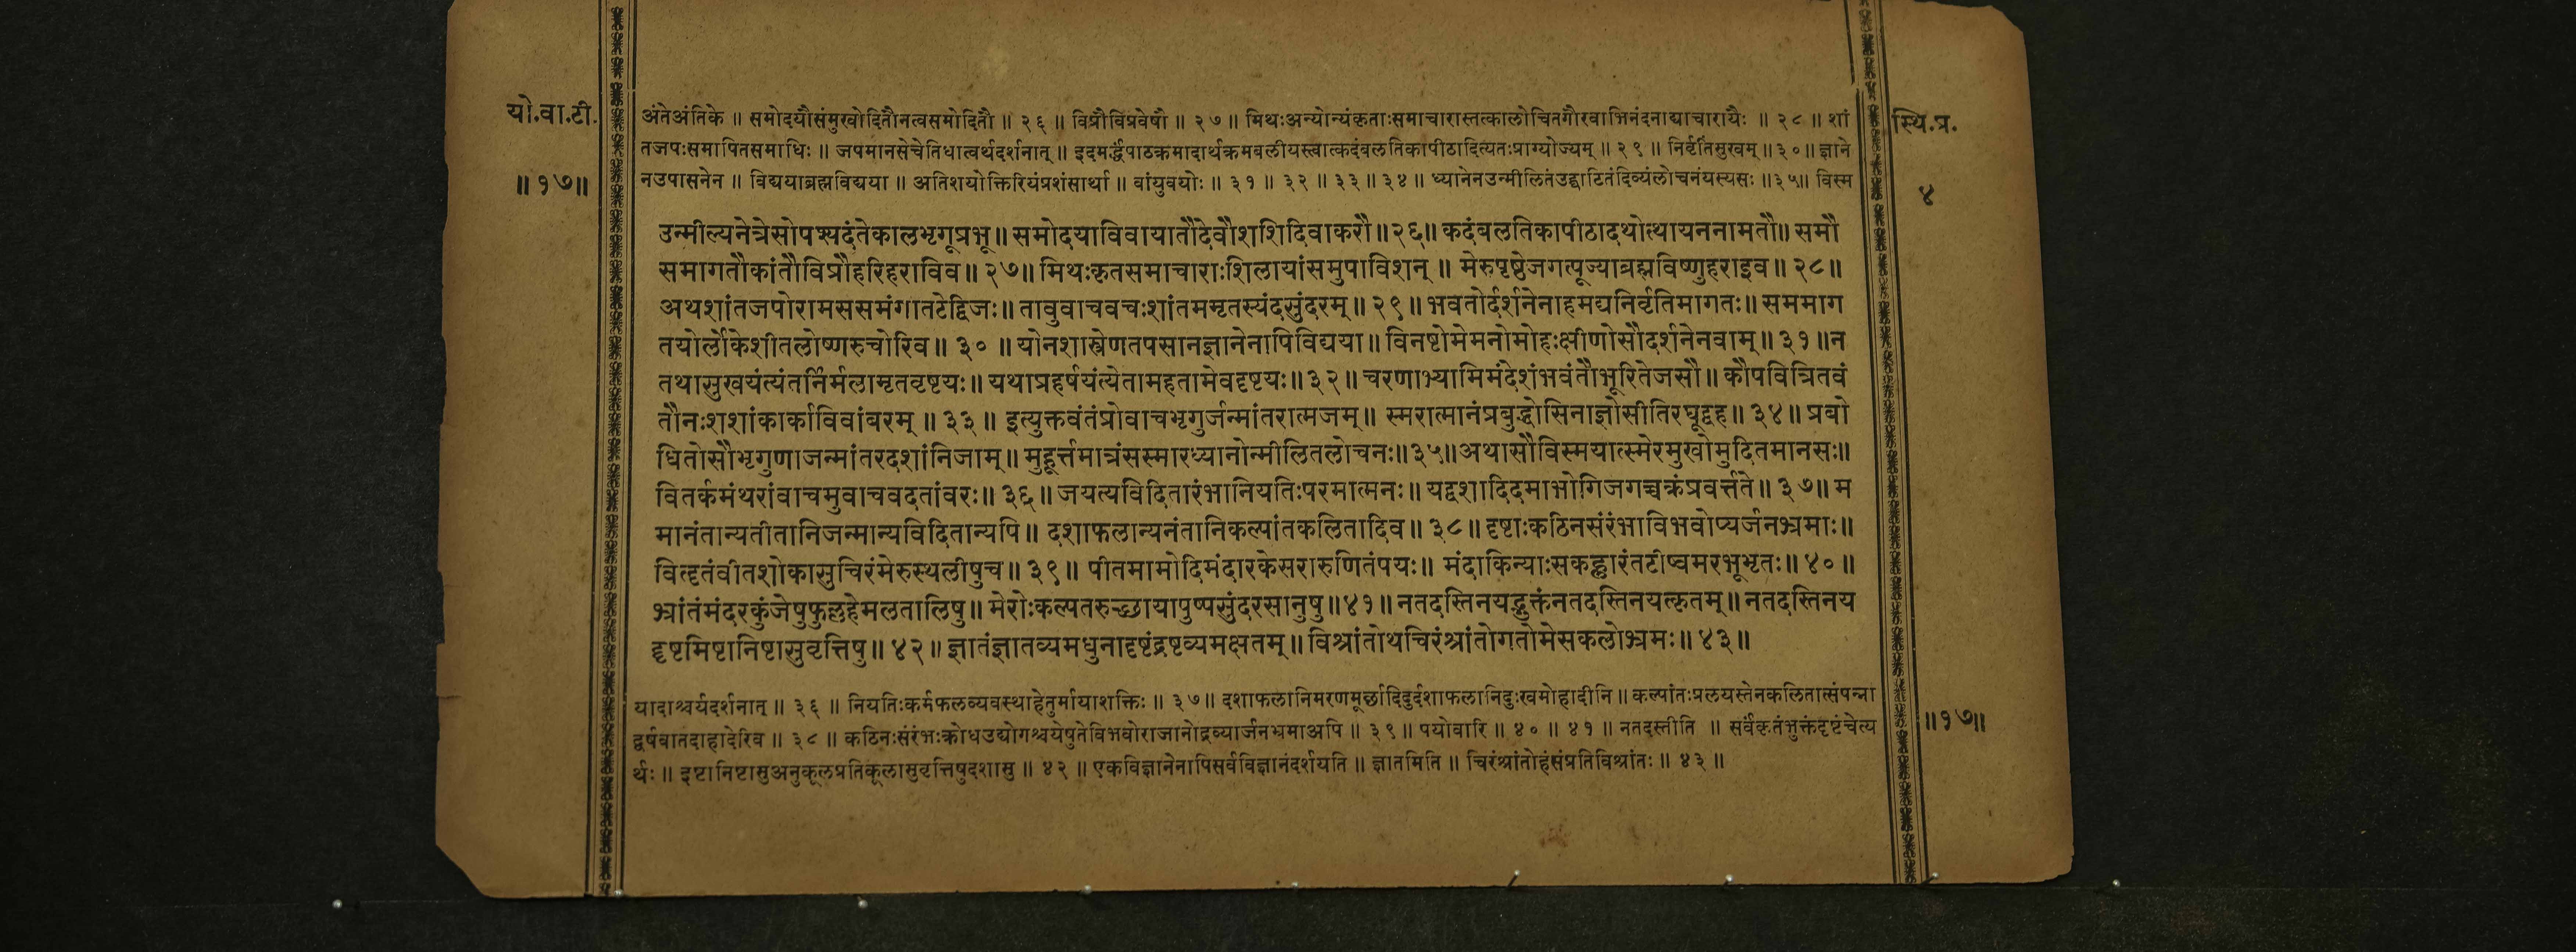 यो.वा.टी.
॥१७॥
स्थि.प्र.
४
अंतेअंतिके ॥ समोदयौसंमुखोदितौनत्वसमोदितौ ॥ २६ ॥ विप्रौविप्रवेषौ ॥ २७ ॥ मिथःअन्योन्यंकृताःसमाचारास्तत्कालोचितगौरवाभिनंदनाद्याचारायैः ॥ २८ ॥ शां
तजपःसमापितसमाधिः ॥ जपमानसेचेतिधात्वर्थदर्शनात् ॥ इदमर्द्धंपाठक्रमादार्थक्रमबलीयस्त्वात्कदंबलतिकापीठादित्यतःप्राग्योज्यम् ॥ २९ ॥ निर्वृतिंसुखम् ॥ ३० ॥ ज्ञाने
नउपासनेन ॥ विद्ययाब्रह्मविद्यया ॥ अतिशयोक्तिरियंप्रशंसार्था ॥ वांयुवयोः ॥ ३१ ॥ ३२ ॥ ३३ ॥ ३४ ॥ ध्यानेनउन्मीलितंउद्घाटितंदिव्यंलोचनंयस्यसः ॥३५॥ विस्म
उन्मील्यनेत्रेसोपश्यदंतेकालभृगूप्रभू॥ समोदयाविवायातौदेवौशशिदिवाकरौ॥२६॥ कदंबलतिकापीठादथोत्थायननामतौ॥ समौ
समागतौकांतौविप्रौहरिहराविव॥ २७॥ मिथःकृतसमाचाराःशिलायांसमुपाविशन् ॥ मेरुपृष्ठेजगत्पूज्याब्रह्मविष्णुहराइव॥ २८॥
अथशांतजपोरामससमंगातटेद्विजः॥ तावुवाचवचःशांतममृतस्यंदसुंदरम्॥ २९॥ भवतोर्दर्शनेनाहमद्यनिर्वृतिमागतः॥ सममाग
तयोर्लोकेशीतलोष्णरुचोरिव॥ ३० ॥ योनशास्त्रेणतपसानज्ञानेनापिविद्यया॥ विनष्टोमेमनोमोहःक्षीणोसौदर्शनेनवाम्॥ ३१॥न
तथासुखयंत्यंतर्निर्मलामृतवृष्टयः॥ यथाप्रहर्षयंत्येतामहतामेवदृष्टयः॥३२॥ चरणाभ्यामिमंदेशंभवंतौभूरितेजसौ॥ कौपवित्रितवं
तौनःशशांकार्काविवांबरम् ॥ ३३॥ इत्युक्तवंतंप्रोवाचभृगुर्जन्मांतरात्मजम्॥ स्मरात्मानंप्रबुद्धोसिनाज्ञोसीतिरघूद्वह॥ ३४॥ प्रबो
धितोसौभृगुणाजन्मांतरदशांनिजाम्॥ मुहूर्त्तमात्रंसस्मारध्यानोन्मीलितलोचनः॥३५॥अथासौविस्मयात्स्मेरमुखोमुदितमानसः॥
वितर्कमंथरांवाचमुवाचवदतांवरः॥ ३६॥ जयत्यविदितारंभानियतिःपरमात्मनः॥ यद्वशादिदमाभोगिजगच्चक्रंप्रवर्त्तते॥ ३७॥ म
मानंतान्यतीतानिजन्मान्यविदितान्यपि॥ दशाफलान्यनंतानिकल्पांतकलितादिव॥ ३८॥ दृष्टाःकठिनसंरंभाविभवोप्यर्जनभ्रमाः॥
विहृतंवीतशोकासुचिरंमेरुस्थलीषुच॥ ३९॥ पीतमामोदिमंदारकेसरारुणितंपयः॥ मंदाकिन्याःसकह्लारंतटीष्वमरभूभृतः॥ ४०॥
भ्रांतंमंदरकुंजेषुफुल्लहेमलतालिषु॥ मेरोःकल्पतरुच्छायापुष्पसुंदरसानुषु॥४१॥ नतदस्तिनयद्भुक्तंनतदस्तिनयत्कृतम्॥ नतदस्तिनय
द्दृष्टमिष्टानिष्टासुवृत्तिषु॥ ४२॥ ज्ञातंज्ञातव्यमधुनादृष्टंद्रष्टव्यमक्षतम्॥ विश्रांतोथचिरंश्रांतोगतोमेसकलोभ्रमः॥ ४३॥
यादाश्चर्यदर्शनात् ॥ ३६ ॥ नियतिःकर्मफलव्यवस्थाहेतुर्मायाशक्तिः ॥ ३७॥ दशाफलानिमरणमूर्छादिदुर्दशाफलानिदुःखमोहादीनि॥ कल्पांतःप्रलयस्तेनकलितात्संपन्ना
द्वर्षवातदाहादेरिव ॥ ३८ ॥ कठिनःसंरंभःक्रोधउद्योगश्चयेषुतेविभवोराजानोद्रव्यार्जनभ्रमाअपि ॥ ३९॥ पयोवारि ॥ ४० ॥ ४१ ॥ नतदस्तीति ॥ सर्वंकृतंभुक्तंदृष्टंचेत्य
र्थः ॥ इष्टानिष्टासुअनुकूलप्रतिकूलासुवृत्तिषुदशासु ॥ ४२ ॥ एकविज्ञानेनापिसर्वविज्ञानंदर्शयति ॥ ज्ञातमिति ॥ चिरंश्रांतोहंसंप्रतिविश्रांतः ॥ ४३ ॥
॥१७॥